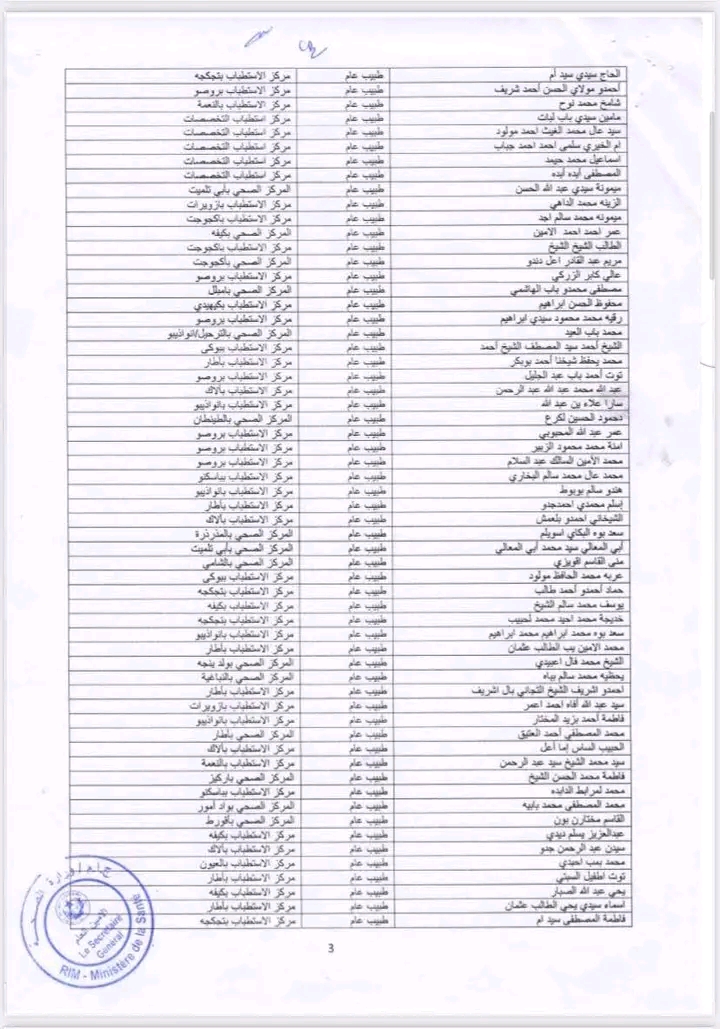 الحاج سيدي سيد أم طبيب عام مركز الاستطباب بتجكجه
أحمدو مولاي الحسن أحمد شريف طبيب عام مركز الاستطباب بروصو
شامخ محمد نوح طبيب عام مركز الاستطباب بالنعمة
مامين سيدي باب لبات طبيب عام مركز استطباب التخصصات
سيد عال محمد الغيث احمد مولود طبيب عام مركز استطباب التخصصات
ام الخيري سلمى احمد احمد جباب طبيب عام مركز استطباب التخصصات
اسماعيل محمد حيمد طبيب عام مركز استطباب التخصصات
المصطفى أبده أبده طبيب عام مركز استطباب التخصصات
ميمونة سيدي عبد الله الحسن طبيب عام المركز الصحي بأبي تلميت
الزينه محمد الداهي طبيب عام مركز الاستطباب بازويرات
ميمونه محمد سالم اجد طبيب عام مركز الاستطباب باكجوجت
عمر احمد احمد الامين طبيب عام المركز الصحي بكيفه
الطالب الشيخ الشيخ طبيب عام مركز الاستطباب باكجوجت
مريم عبد القادر اعل دندو طبيب عام المركز الصحي بأكجوجت
عالي كابر الزركي طبيب عام مركز الاستطباب بروصو
مصطفى محمدو باب الهاشمي طبيب عام المركز الصحي بامبلل
محفوظ الحسن ابراهيم طبيب عام مركز الاستطباب بكيهيدي
رقيه محمد محمود سيدي ابراهيم طبيب عام مركز الاستطباب بروصو
محمد باب العيد طبيب عام المركز الصحي بالترحيل/انواذيبو
الشيخ أحمد سيد المصطف الشيخ أحمد طبيب عام مركز الاستطباب ببوكى
محمد يحفظ شيخنا أحمد بوبكر طبيب عام مركز الاستطباب بأطار
توت أحمد باب عبد الجليل طبيب عام مركز الاستطباب بروصو
عبد الله محمد عبد الله عبد الرحمن طبيب عام مركز الاستطباب بألاك
سارا علاء بن عبد الله طبيب عام مركز الاستطباب بانواذيبو
دحمود الحسين لكرع طبيب عام المركز الصحي بالطينطان
عمر عبد الله المحبوبي طبيب عام مركز الاستطباب بروصو
امنة محمد محمود الزبير طبيب عام مركز الاستطباب بروصو
محمد الأمين السالك عبد السلام طبيب عام مركز الاستطباب بروصو
محمد عال محمد سالم البخاري طبيب عام مركز الاستطباب بباسكنو
هندو سالم بوبوط طبيب عام مركز الاستطباب بانواذيبو
إسلم محمدي احمدجدو طبيب عام مركز الاستطباب بأطار
الشيخاني احمدو بلعمش طبيب عام مركز الاستطباب بألاك
سعد بوه البكاي اسويلم طبيب عام المركز الصحي بالمذرذرة
أبي المعالي سيد محمد أبي المعالي طبيب عام المركز الصحي بأبي تلميت
منى القاسم اقويزي طبيب عام المركز الصحي بالشامي
عربه محمد الحافظ مولود طبيب عام مركز الاستطباب ببوكى
حماد أحمدو أحمد طالب طبيب عام مركز الاستطباب بتجكجه
يوسف محمد سالم الشيخ طبيب عام مركز الاستطباب بكيفه
خديجة محمد احيد محمد لحبيب طبيب عام مركز الاستطباب بتجكجه
سعد بوه محمد ابراهيم محمد ابراهيم طبيب عام مركز الاستطباب بانواذيبو
محمد الامين يب الطالب عثمان طبيب عام مركز الاستطباب بأطار
الشيخ محمد فال اعبيدي طبيب عام المركز الصحي بولد ينجه
يحظيه محمد سالم بباه طبيب عام المركز الصحي بالنباغية
احمدو اشريف الشيخ التجاني بال اشريف طبيب عام مركز الاستطباب بأطار
سيد عبد الله أفاه احمد اعمر طبيب عام مركز الاستطباب بازويرات
فاطمة أحمد بزيد المختار طبيب عام مركز الاستطباب بانواذيبو
محمد المصطفي أحمد العتيق طبيب عام المركز الصحي بأطار
الحبيب الساس إما أعل طبيب عام مركز الاستطباب بألاك
سيد محمد الشيخ سيد عبد الرحمن طبيب عام مركز الاستطباب بالنعمة
فاطمة محمد الحسن الشيخ طبيب عام المركز الصحي باركيز
محمد لمرابط الدابده طبيب عام مركز الاستطباب بباسكنو
محمد المصطفى محمد بابيه طبيب عام المركز الصحي بواد أمور
القاسم مختارن بون طبيب عام المركز الصحي بأقورط
عبدالعزيز يسلم ديدي طبيب عام مركز الاستطباب بكيفه
سيدن عبد الرحمن جدو طبيب عام مركز الاستطباب بألاك
محمد بمب احبدي طبيب عام مركز الاستطباب بالعيون
توت اطفيل السبتي طبيب عام مركز الاستطباب بأطار
يحي عبد الله الصبار طبيب عام مركز الاستطباب بكيفه
اسماء سيدي يحي الطالب عثمان طبيب عام مركز الاستطباب بأطار
فاطمة المصطفى سيد ام طبيب عام مركز الاستطباب بتجكجه
3
ج.ا.م / وزارة الصحة
الأمين العام
Le Secrétaire
Général
RIM - Ministère de la Santé